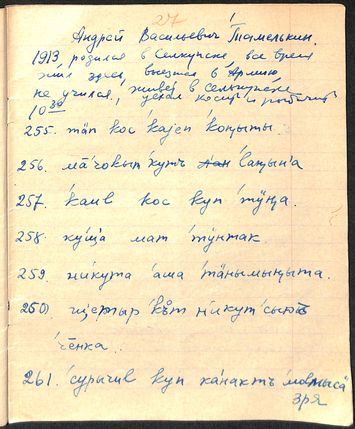 27
Андрей Васильевич Тамелькин.
1913, родился в Селкупске, все время
жил здесь, выезжал в Армию,
не учился, живёт в Селькупске
10³⁰ уехал косить и рыбачить
255. тӓп кос ка́јеп коӊыты.
256. ма̄човып кутъ ваӊына
257. каив кос куп тӱӊа.
258. ку́ща мат ту́нтак.
259. ни́кута аша тӓнымыӊыта.
250)
чёнка.
261. сурычив куп ка́нактъ
зря